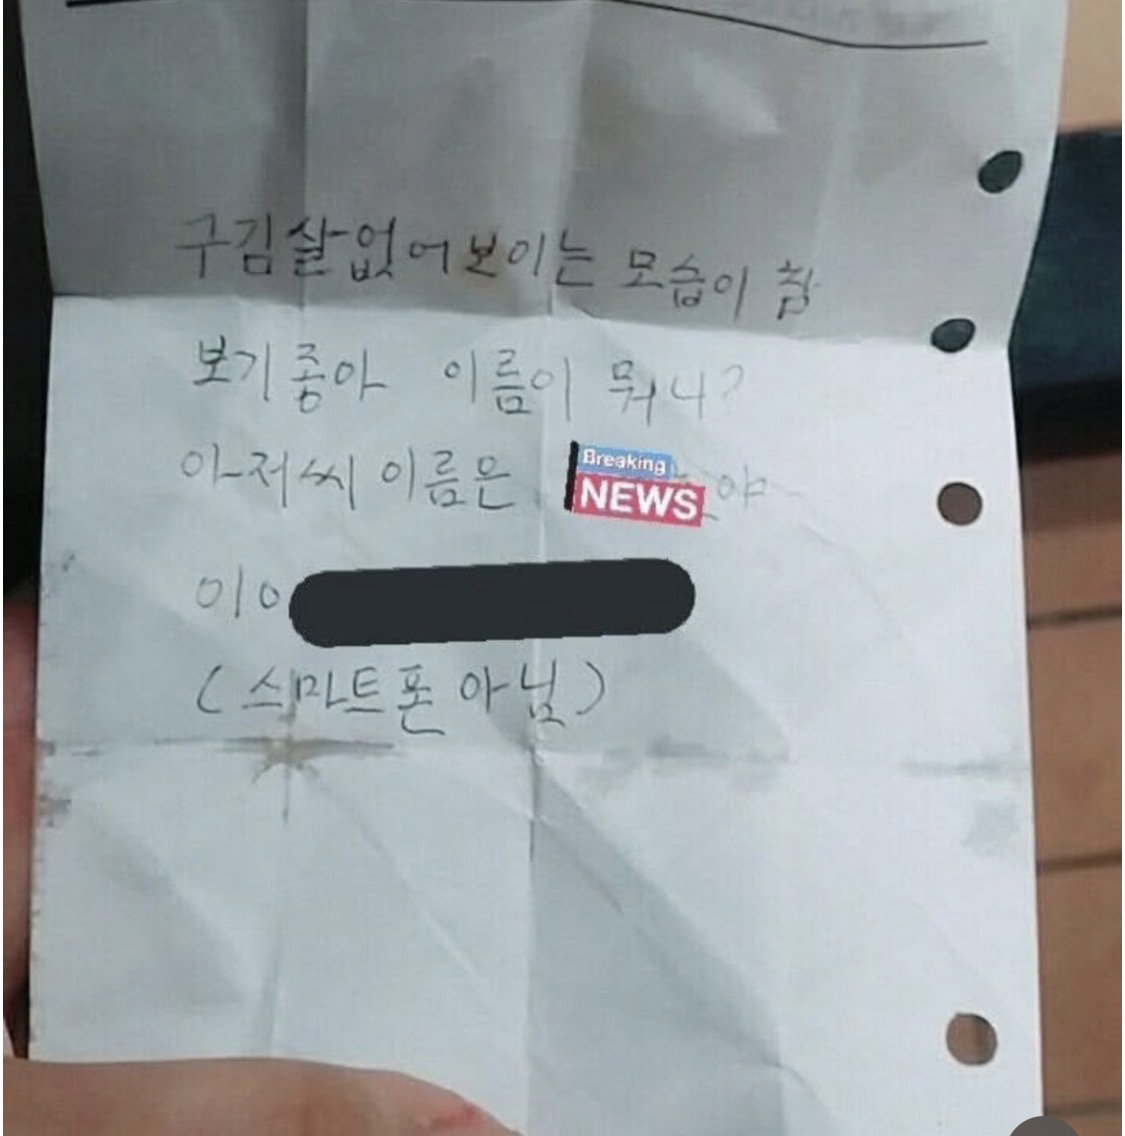 구김살없어보이는 모습이 참
보기좋아 이름이 뭐니?
아저씨 이름은
Breaking
NEWS
야
010
(스마트폰 아님)